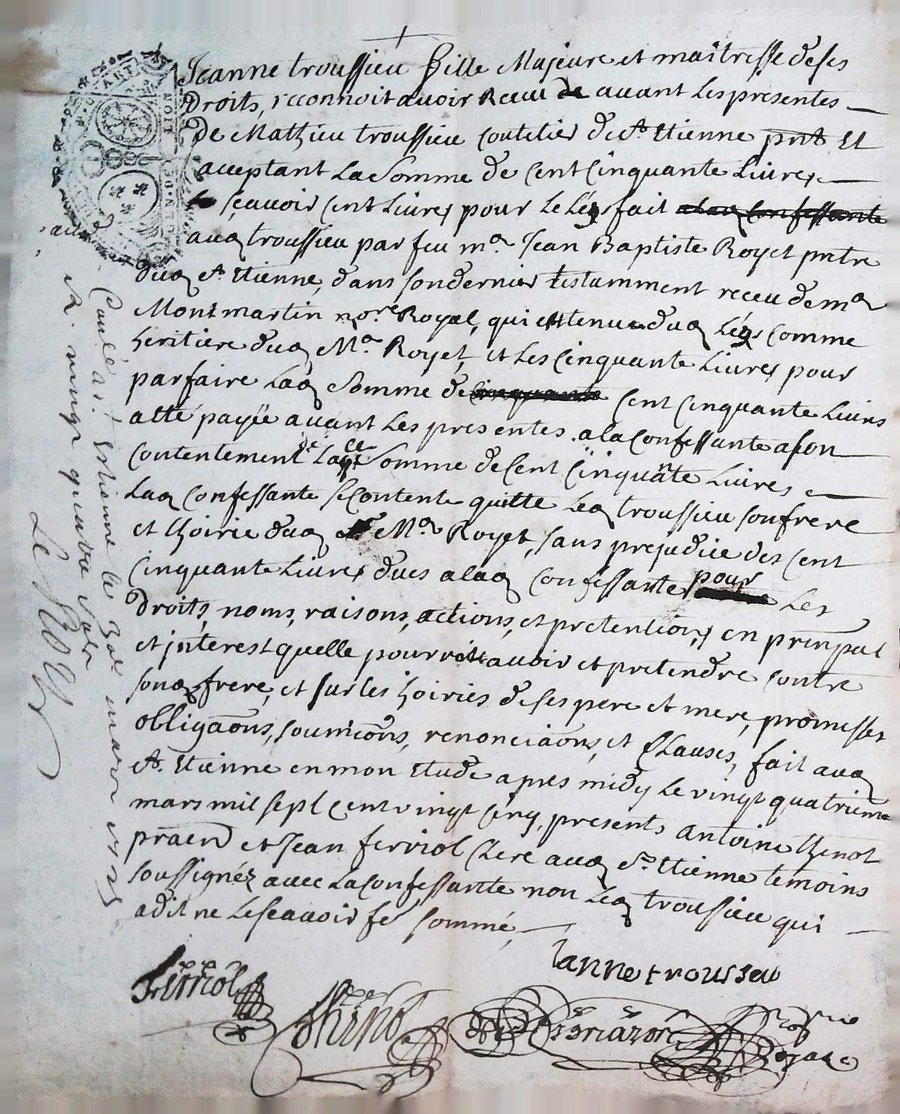 Jeanne troussieu fille Majeure et maîtresse de ses
droits, reconnoit avoir Receu de avant les presentes
de Mathieu troussieu coutelier de St Etienne pnt Et
acceptant La Somme de Cent Cinquante Livres
Sçavoir Cent Livres pour le Légs fait a lad Confessante
aud troussieu par feu mre Jean Baptiste Royet prêtre
dud St Etienne, dans son dernier testamment receu de me
Montmartin nore Royal, qui est tenue dud Légs comme
heritière dud Mre Royet, et les Cinquante Livres pour
parfaire Lad Somme de Cinquante Cent Cinquante Livres
atté payée avant Les presentes a la Confessante a son
Contentement de Lad Somme de Cent Cinquäte Livres
Lad Confessante se Contente quitte Led troussieu son frere
et hoirie dud Mre Royet, sans prejudice des Cent
Cinquante Livres dues a lad Confessante pour Les
droits, noms, raisons, actions, et pretentions en prinpal
et interest quelle pourroit avoir et pretendre contre
sond frere, et sur les hoiries de ses pere et mere, promesses
obligaõns, soumiõns, renonciaõns, et Clauses, fait aud
St Etienne en mon Etude apres midy Le vingt quatrieme
mars mil sept Cent vingt Cinq, presents Antoine thenot
pratien et Jean ferriol Clerc aud St Etienne temoins
soussignéz avec La Confessante non Led troussieu qui
a dit ne Le Scavoir fe sommé
Janne trousseu
ferriol
thenot
nore
Royal
Conlé a St Estienne le 30e mars 1725
R. vingt quatre sols